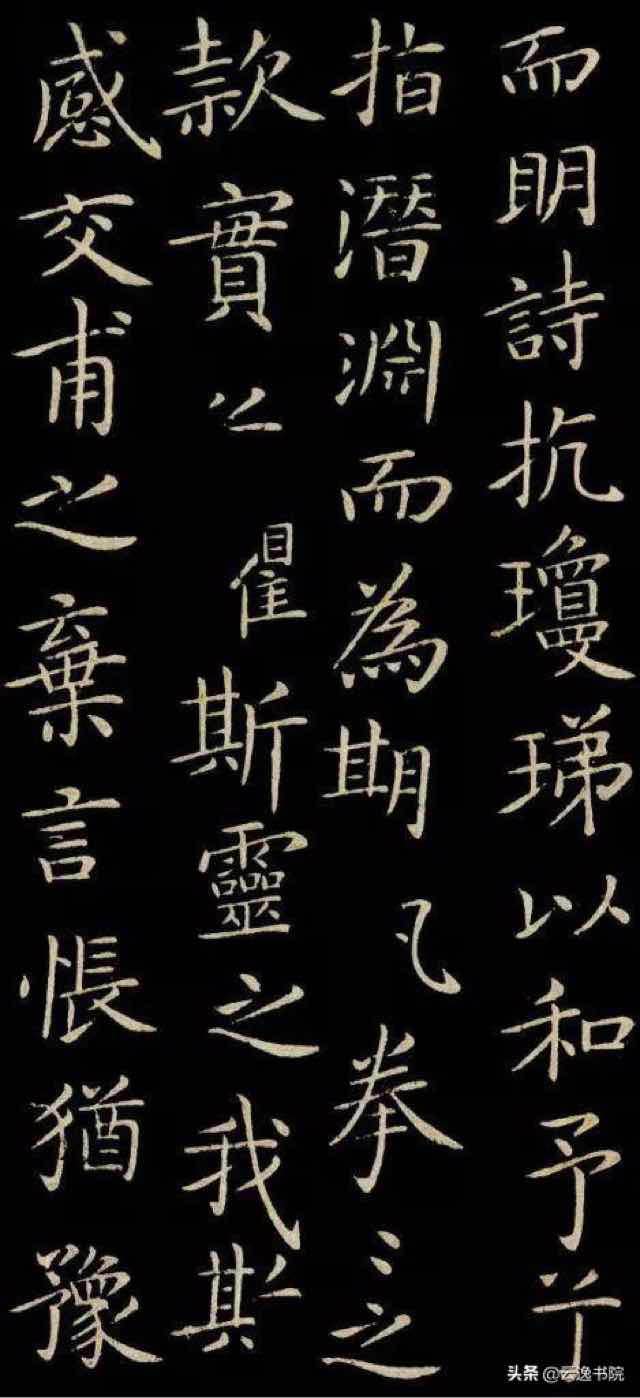 而明詩抗瓊珶以和予兮
指潛淵而為期拳〻之
款實兮瞿斯靈之我欺
感交甫之棄言悵猶豫
头条 @云逸书院